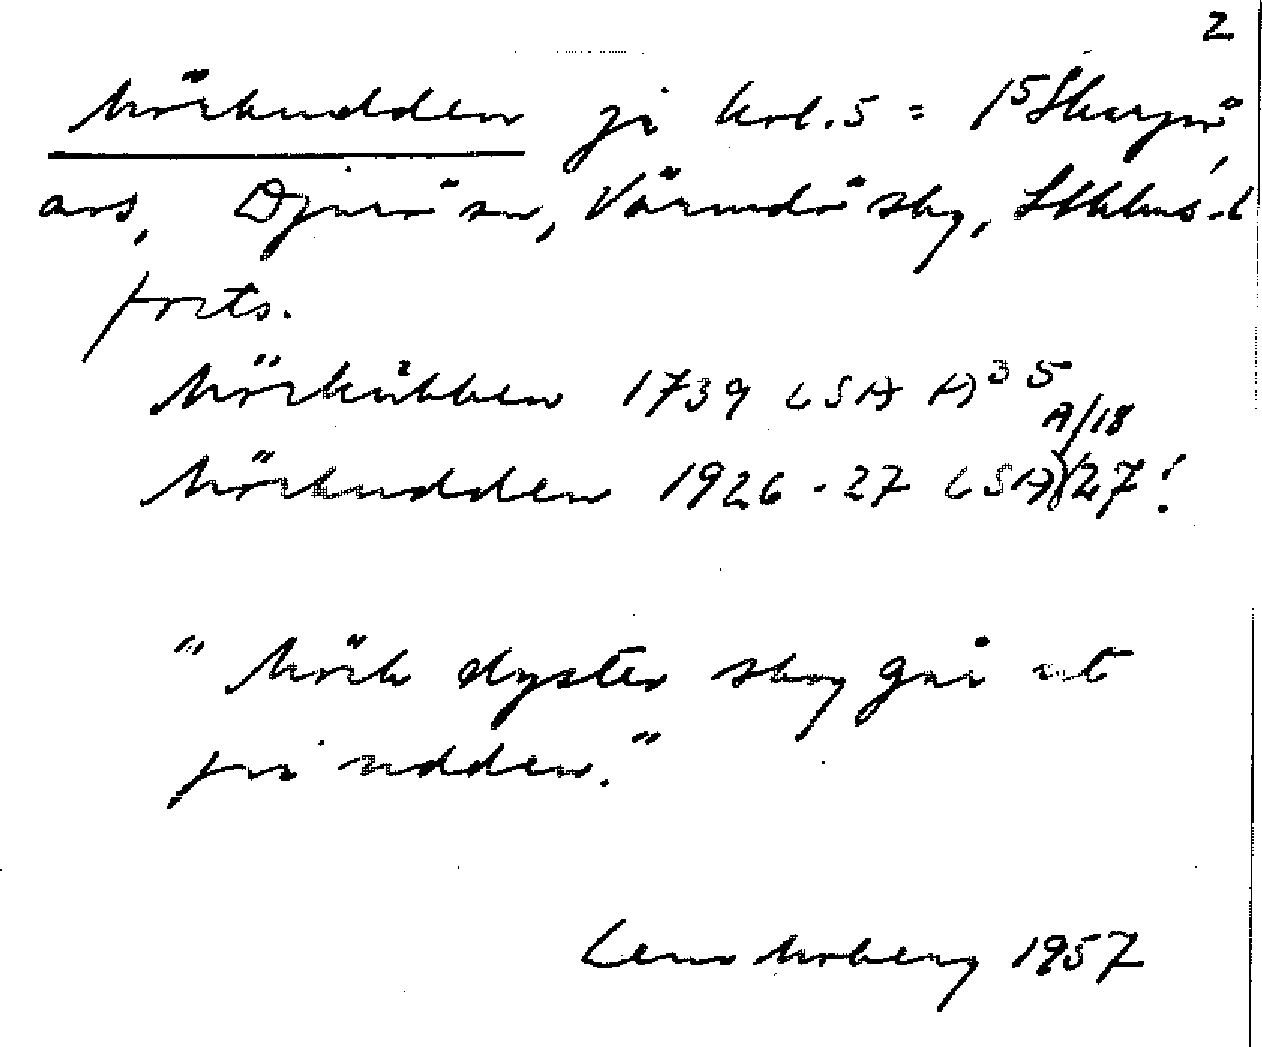 2
Mörkudden på kol. 5 = 15 Skarpö,
avs, Djurö sn, Värmdö skg, Sthlms l
forts.
Mörkubben 1739 LSA A35
A/18
Mörkudden 1926-27 LSA 8/27!
"Mörk dyster skog går ut
på udden."
Lena Moberg 1957